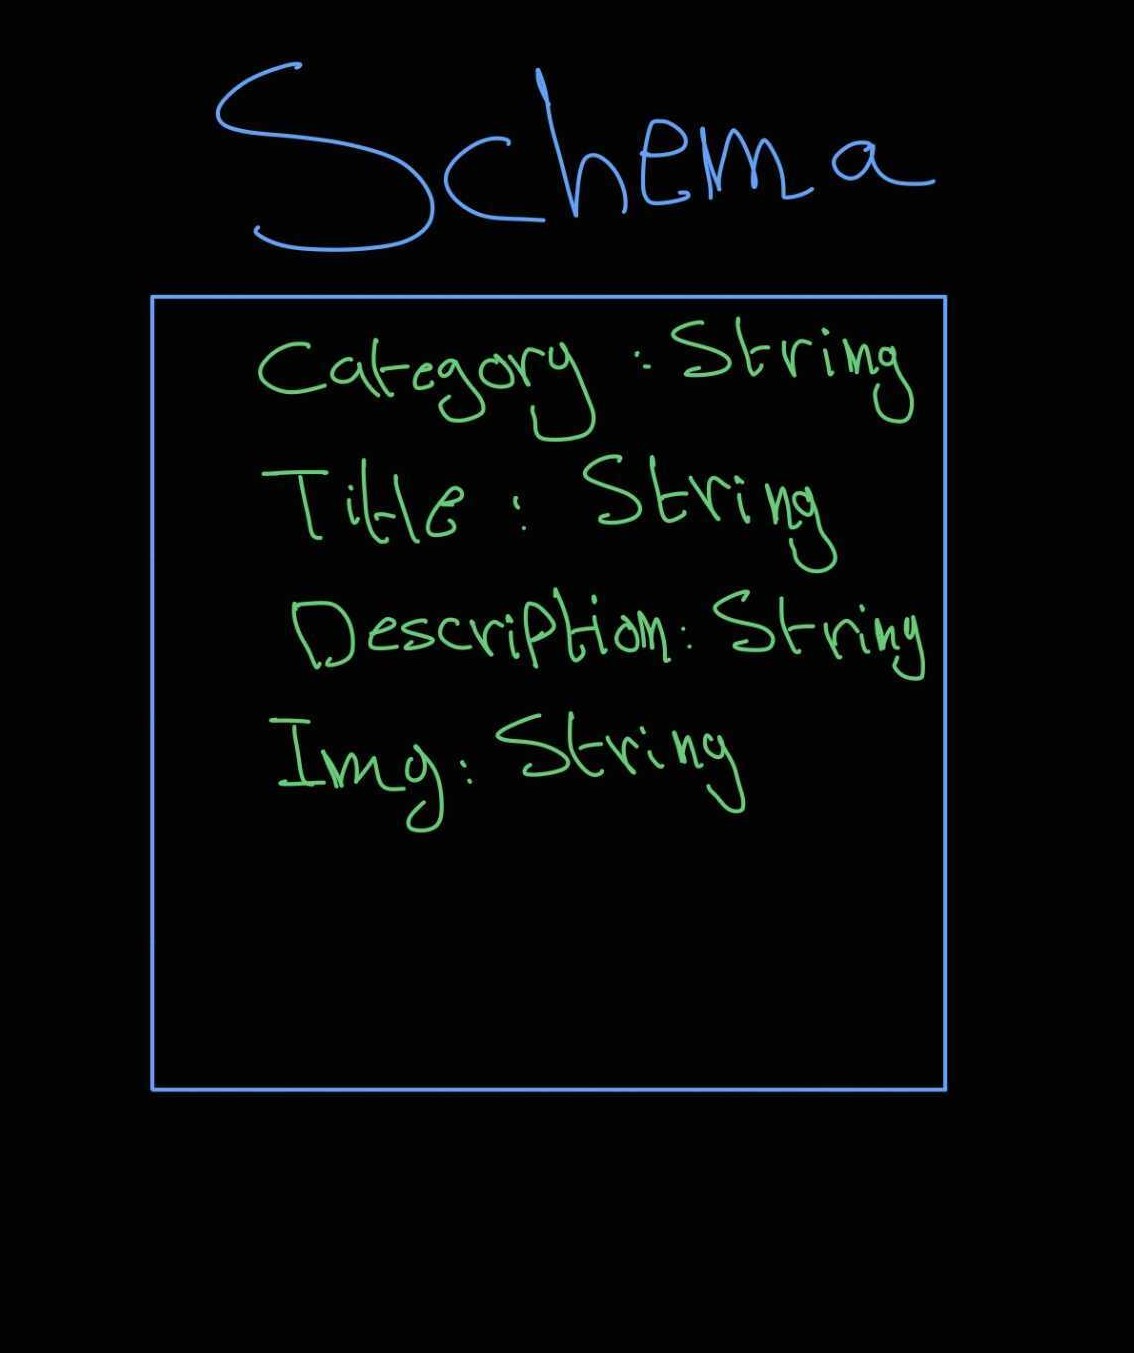 Schema
Category : String
Title : String
Description : String
Img : String